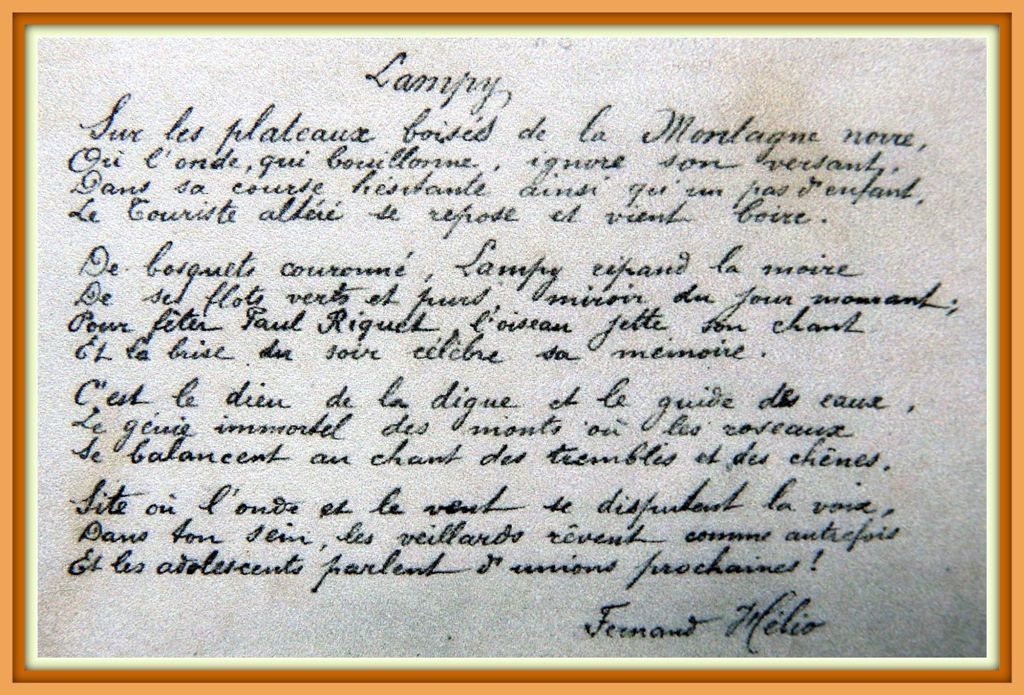 Lampy
Sur les plateaux boisés de la Montagne noire,
Où l'onde, qui bouillonne, ignore son versant,
Dans sa course hésitante ainsi qu'un pas d'enfant,
Le Touriste altéré se repose et vient boire.
De bosquets couronné, Lampy répand la moire
De ses flots verts et purs, miroir du jour mourant;
Pour fêter Paul Riquet, l'oiseau jette son chant
Et la brise du soir célèbre sa mémoire.
C'est le dieu de la digue et le guide des eaux,
Le génie immortel des monts où les roseaux
Se balancent au chant des trembles et des chênes.
Site où l'onde et le vent se disputent la voix,
Dans ton sein, les veillards rêvent comme autrefois
Et les adolescents parlent d'unions prochaines!
Fernand Hélio